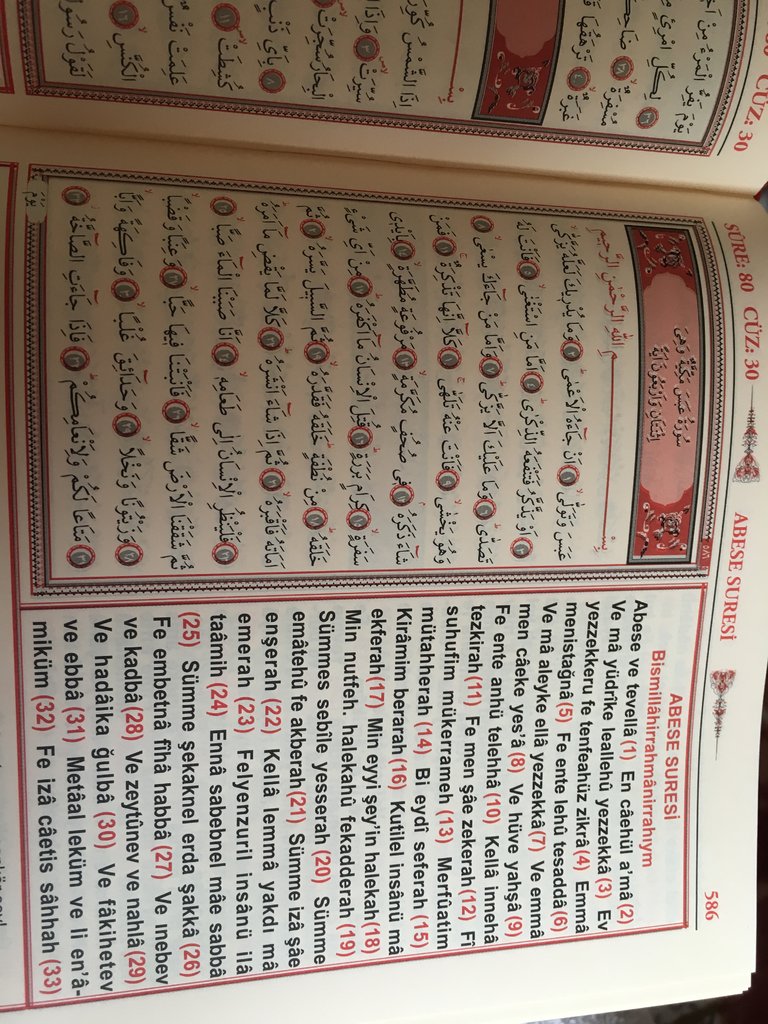 SÛRE: 80 CÜZ: 30
ABESE SURESİ
586
سُورَةُ عَبَسَ مَكِّيَّةٌ وَهِيَ
اِثْنَتَانِ وَاَرْبَعُونَ اٰيَةً
بِسْمِ اللّٰهِ الرَّحْمٰنِ الرَّحِيمِ
عَبَسَ وَتَوَلّٰىۙ ﴿١﴾ اَنْ جَٓاءَهُ الْاَعْمٰىۜ ﴿٢﴾ وَمَا يُدْرٖيكَ لَعَلَّهُ يَزَّكّٰىۙ
﴿٣﴾ اَوْ يَذَّكَّرُ فَتَنْفَعَهُ الذِّكْرٰىۜ ﴿٤﴾ اَمَّا مَنِ اسْتَغْنٰىۙ ﴿٥﴾ فَاَنْتَ لَهُ
تَصَدّٰىۜ ﴿٦﴾ وَمَا عَلَيْكَ اَلَّا يَزَّكّٰىۜ ﴿٧﴾ وَاَمَّا مَنْ جَٓاءَكَ يَسْعٰىۙ ﴿٨﴾
وَهُوَ يَخْشٰىۙ ﴿٩﴾ فَاَنْتَ عَنْهُ تَلَهّٰىۚ ﴿١٠﴾ كَلَّٓا اِنَّهَا تَذْكِرَةٌۚ ﴿١١﴾ فَمَنْ
شَٓاءَ ذَكَرَهُۢ ﴿١٢﴾ فٖي صُحُفٍ مُكَرَّمَةٍۙ ﴿١٣﴾ مَرْفُوعَةٍ مُطَهَّرَةٍۙ ﴿١٤﴾ بِاَيْدٖي
سَفَرَةٍۙ ﴿١٥﴾ كِرَامٍ بَرَرَةٍۜ ﴿١٦﴾ قُتِلَ الْاِنْسَانُ مَٓا اَكْفَرَهُۜ ﴿١٧﴾ مِنْ اَيِّ شَيْءٍ
خَلَقَهُۜ ﴿١٨﴾ مِنْ نُطْفَةٍۜ خَلَقَهُ فَقَدَّرَهُۙ ﴿١٩﴾ ثُمَّ السَّبٖيلَ يَسَّرَهُۙ ﴿٢٠﴾ ثُمَّ
اَمَاتَهُ فَاَقْبَرَهُۙ ﴿٢١﴾ ثُمَّ اِذَا شَٓاءَ اَنْشَرَهُۜ ﴿٢٢﴾ كَلَّا لَمَّا يَقْضِ مَٓا اَمَرَهُۜ
﴿٢٣﴾ فَلْيَنْظُرِ الْاِنْسَانُ اِلٰى طَعَامِهٖۙ ﴿٢٤﴾ اَنَّا صَبَبْنَا الْمَٓاءَ صَبًّاۙ ﴿٢٥﴾
ثُمَّ شَقَقْنَا الْاَرْضَ شَقًّاۙ ﴿٢٦﴾ فَاَنْبَتْنَا فٖيهَا حَبًّاۙ ﴿٢٧﴾ وَعِنَبًا وَقَضْبًاۙ
﴿٢٨﴾ وَزَيْتُونًا وَنَخْلًاۙ ﴿٢٩﴾ وَحَدَٓائِقَ غُلْبًاۙ ﴿٣٠﴾ وَفَاكِهَةً وَاَبًّاۙ
﴿٣١﴾ مَتَاعًا لَكُمْ وَلِاَنْعَامِكُمْۜ ﴿٣٢﴾ فَاِذَا جَٓاءَتِ الصَّٓاخَّةُۘ ﴿٣٣﴾
يَوْمَ
ABESE SURESİ
Bismillâhirrahmânirrahıym
Abese ve tevellâ (1) En câehül a'mâ (2)
Ve mâ yüdrîke leallehû yezzekkâ (3) Ev
yezzekkeru fe tenfeahüz zikrâ (4) Emmâ
menistağnâ (5) Fe ente lehû tesaddâ (6)
Ve mâ aleyke ellâ yezzekkâ (7) Ve emmâ
men câeke yes'â (8) Ve hüve yahşâ (9)
Fe ente anhü telehhâ (10) Kellâ innehâ
tezkirah (11) Fe men şâe zekerah (12) Fî
suhufim mükerrameh (13) Merfûatim
mütahherah (14) Bi eydî seferah (15)
Kirâmim berarah (16) Kutilel insânü mâ
ekferah (17) Min eyyi şey'in halekah (18)
Min nutfeh. halekahû fekadderah (19)
Sümmes sebîle yesserah (20) Sümme
emâtehû fe akberah (21) Sümme izâ şâe
enşerah (22) Kellâ lemmâ yakdı mâ
emerah (23) Felyenzuril insânü ilâ
taâmih (24) Ennâ sabebnel mâe sabbâ
(25) Sümme şekaknel erda şakkâ (26)
Fe embetnâ fîhâ habbâ (27) Ve ınebev
ve kadbâ (28) Ve zeytûnev ve nahlâ (29)
Ve hadâika ğulbâ (30) Ve fâkihetev
ve ebbâ (31) Metâal leküm ve li en'â-
miküm (32) Fe izâ câetis sâhhah (33)
CÜZ: 30